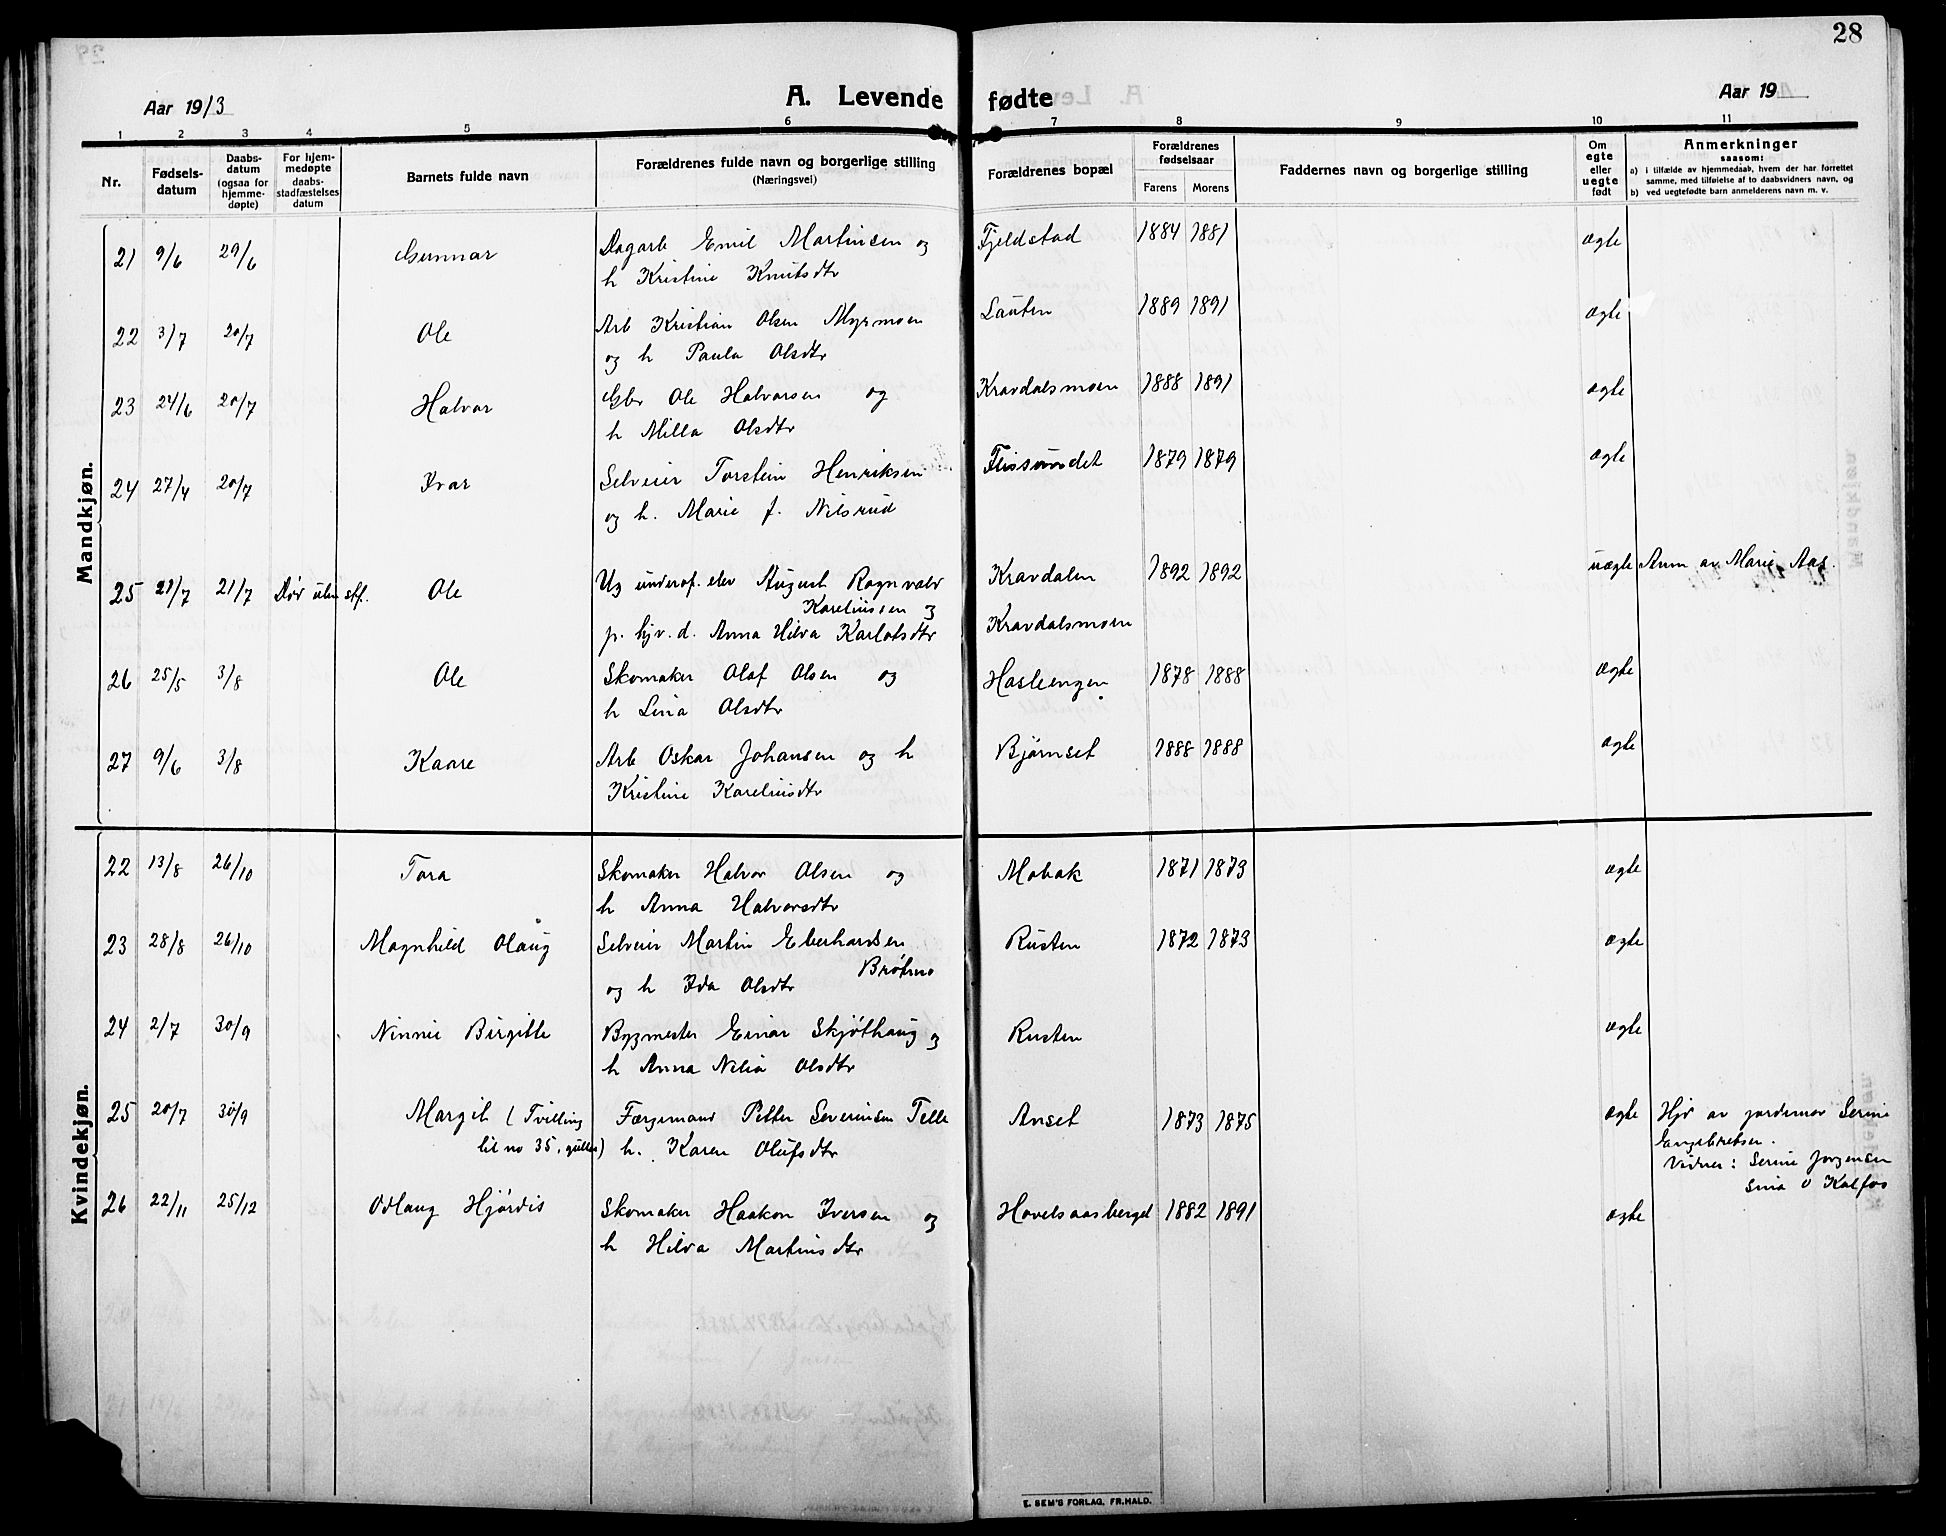 28
Aar 1913
A. Levende fødte
Aar 19
1 2 3 4 5 6 7 8 9 10 11
Nr.
Fødselsdatum
Daabsdatum (ogsaa for hjemmedøpte)
For hjemmedøpte daabsstadfæstelses datum
Barnets fulde navn
Forældrenes fulde navn og borgerlige stilling
(Næringsvei)
Forældrenes bopæl
Forældrenes fødselsaar
Farens Morens
Faddernes navn og borgerlige stilling
Om egte eller uegte født
Anmerkninger
saasom:
a) i tilfælde av hjemmedaab, hvem der har forrettet samme, med tilføielse af to daabsvidners navn, og
b) ved uegtefødte barn anmelderens navn m. v.
Mandkjøn.
21 9/6 29/6 Gunnar Dagarb Emil Martinsen og Fjeldstad 1884 1881 ægte
h Kristine Knutsdtr
22 3/7 20/7 Ole Arb Kristian Olsen Myrmoen Lauten 1889 1891 ægte
og h Paula Olsdtr
23 24/6 20/7 Halvor Gbr Ole Halvorsen og Kravdalsmoen 1888 1891 ægte
h Milla Olsdtr
24 27/4 20/7 Ivar Selveier Torstein Henriksen 1879 1879 ægte
og h. Marie f. Nilsrud
25 21/7 Ole Ug underof. elev August Ragnvald Kravdalen 1892 1892 uægte Anm av Marie Aas.
Kareliussen og
p. hjv. d. Anna Hilda Karlotsdtr Kravdalsmoen
26 25/5 3/8 Ole Skomaker Olaf Olsen og Haslengen 1878 1888 ægte
h Lina Olsdtr
27 9/6 3/8 Kaare Arb Oskar Johansen og h Bjørnset 1888 1888 ægte
Kristine Kareliusdtr
Kvindekjøn.
22 13/8 26/10 Tora Skomaker Halvor Olsen og Mobak 1871 1873 ægte
h Anna Halvorsdtr
23 28/8 26/10 Magnhild Olaug Selveier Martin Eberhardsen Rusten 1872 1873 ægte
Bråten
og h Ida Olsdtr
24 2/7 30/9 Ninnie Birgitte Bygmester Einar Skjøthaug og Rusten ægte
h Anna Nilia Olsdtr
25 20/7 30/9 Margit (Tvilling Færgemand Petter Severinsen Telle Anset 1873 1875 ægte Hjd av jordemor Serine
til no 35, gutter) h. Karen Olufsdtr Engebretsen.
Vidner: Serine Jørgensen
Lina O Kalfos
26 22/11 25/12 Odlaug Hjørdis Skomaker Haakon Iversen og Hovelsaasberget 1882 1891 ægte
h Hilda Martinsdtr
E. SEM'S FORLAG, FR.HALD.